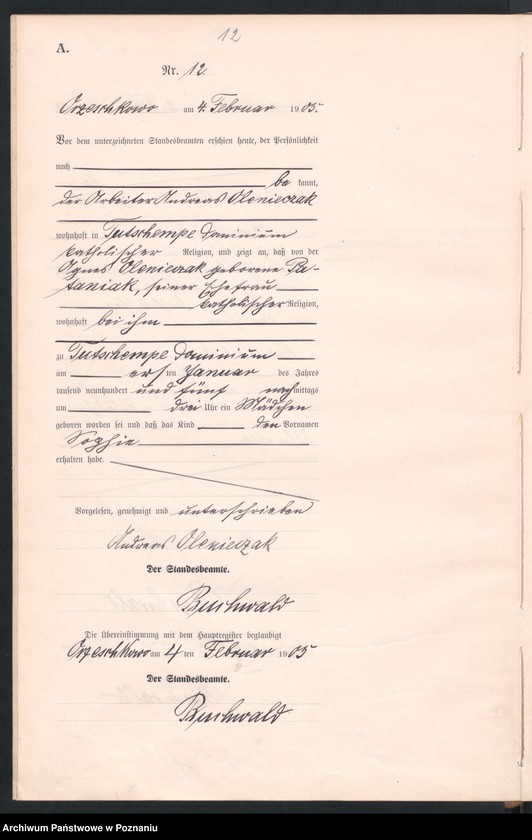 12
A.
Nr. 12.
Orzeschkowo am 4. Februar 1905.
Vor dem unterzeichneten Standesbeamten erschien heute, der Persönlichkeit
nach
be kannt,
der Arbeiter Andreas Olenieczak
wohnhaft in Tutschempe Dominium
katholischer Religion, und zeigt an, daß von der
Agnes Olenieczak geborene Pa-
taniak, seiner Ehefrau
katholischer Religion,
wohnhaft bei ihm
zu Tutschempe Dominium
am ersten Januar des Jahres
tausend neunhundert und fünf nachmittags
um drei Uhr ein Mädchen
geboren worden sei und daß das Kind den Vornamen
Sophie
erhalten habe.
Vorgelesen, genehmigt und unterschrieben
Andreas Olenieczak
Der Standesbeamte.
Buchwald
Die Übereinstimmung mit dem Hauptregister beglaubigt
Orzeschkowo am 4 ten Februar 1905
Der Standesbeamte.
Buchwald
Archiwum Państwowe w Poznaniu